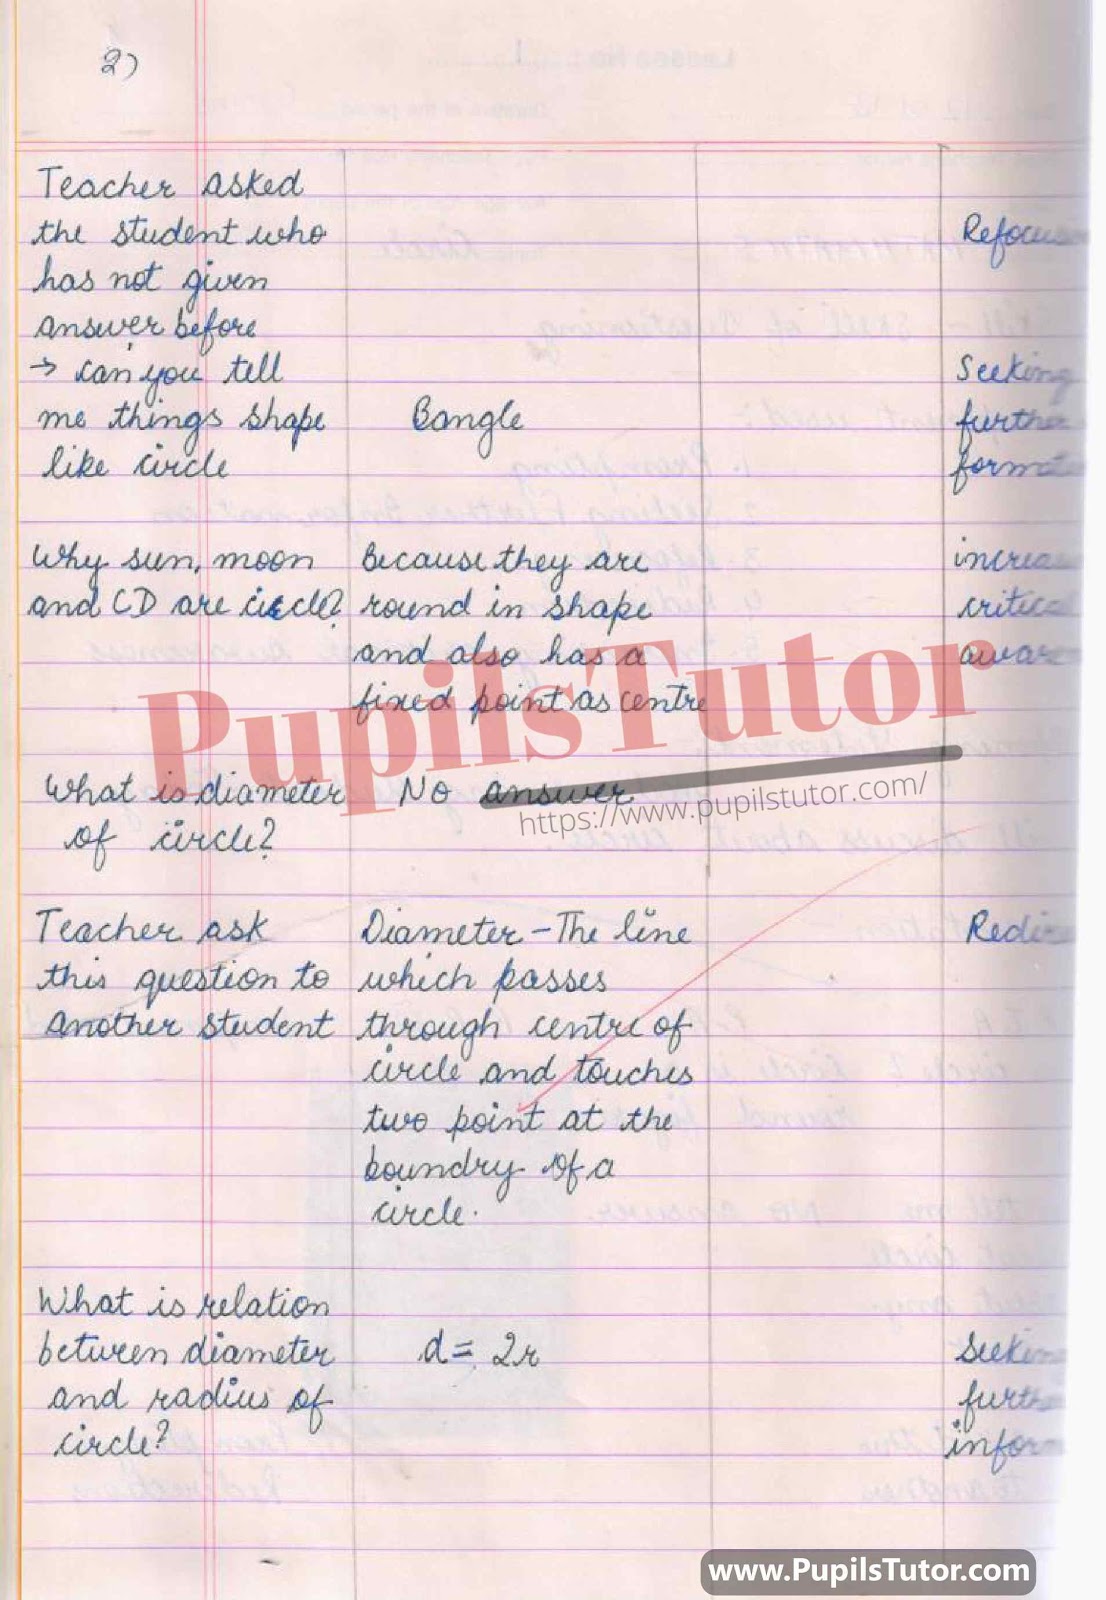 2)
Teacher asked
the student who
has not given
answer before
→ can you tell
me things shape
like circle
Bangle
Refocus
Seeking
further
format
Why sun, moon
and CD are circle?
Because they are
round in shape
and also has a
fixed point as centre
increas
critical
aware
What is diameter
of circle?
No answer
Teacher ask
this question to
another student
Diameter - The line
which passes
through centre of
circle and touches
two point at the
boundry of a
circle.
Redire
What is relation
between diameter
and radius of
circle?
d = 2r
Seeking
further
inform
PupilsTutor
https://www.pupilstutor.com/
www.PupilsTutor.com